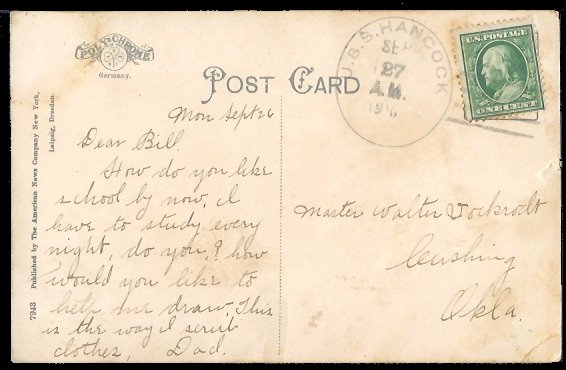 POLY-CHROME
Germany.
POST CARD
U.S.S. HANCOCK
SEP
27
A.M.
U.S. POSTAGE
ONE CENT
7943 Published by The American News Company New York,
Leipzig, Dresden.
Mon Sept 26
Dear Bill
How do you like
school by now, I
have to study every
night, do you? how
would you like to
help me draw. This
is the way I scrub
clothes, Dad.
Master Walter
Cushing
Okla.